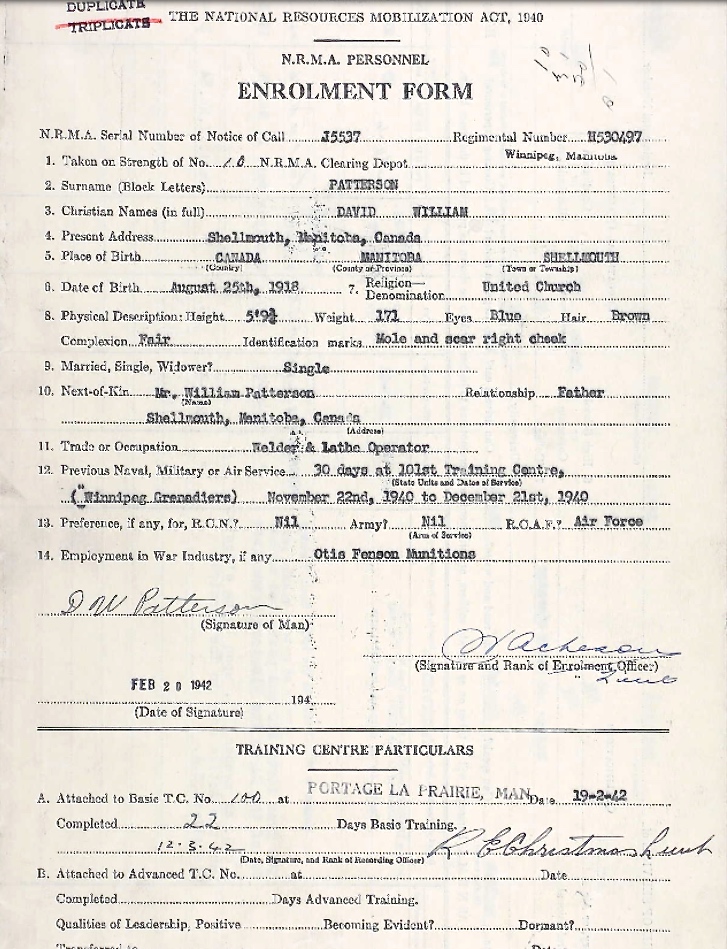 DUPLICATE
TRIPLICATE
THE NATIONAL RESOURCES MOBILIZATION ACT, 1940
N.R.M.A. PERSONNEL
ENROLMENT FORM
N.R.M.A. Serial Number of Notice of Call J5537 Regimental Number H530497
1. Taken on Strength of No. 10 N.R.M.A. Clearing Depot Winnipeg, Manitoba
2. Surname (Block Letters) PATTERSON
3. Christian Names (in full) DAVID WILLIAM
4. Present Address Shellmouth, Manitoba, Canada
5. Place of Birth CANADA MANITOBA SHELLMOUTH
(Country) (County or Province) (Town or Township)
6. Date of Birth August 25th, 1918 7. Religion—Denomination United Church
8. Physical Description: Height 5'9¾ Weight 171 Eyes Blue Hair Brown
Complexion Fair Identification marks Mole and scar right cheek
9. Married, Single, Widower? Single
10. Next-of-Kin Mr. William Patterson Relationship Father
(Name)
Shellmouth, Manitoba, Canada
(Address)
11. Trade or Occupation Welder & Lathe Operator
12. Previous Naval, Military or Air Service 30 days at 101st Training Centre,
(State Units and Dates of Service)
("Winnipeg Grenadiers) November 22nd, 1940 to December 21st, 1940
13. Preference, if any, for, R.C.N.? Nil Army? Nil R.C.A.F.? Air Force
(Arm of Service)
14. Employment in War Industry, if any Otis Fenson Munitions
D W Patterson
(Signature of Man)
Acheson
(Signature and Rank of Enrolment Officer)
Lieut
FEB 20 1942
194
(Date of Signature)
TRAINING CENTRE PARTICULARS
A. Attached to Basic T.C. No. 100 at PORTAGE LA PRAIRIE, MAN. Date 19-2-42
Completed 22 Days Basic Training.
12.3.42 R E Christmas Lieut
(Date, Signature, and Rank of Recording Officer)
B. Attached to Advanced T.C. No. at Date
Completed Days Advanced Training.
Qualities of Leadership, Positive Becoming Evident? Dormant?
Transferred to Date